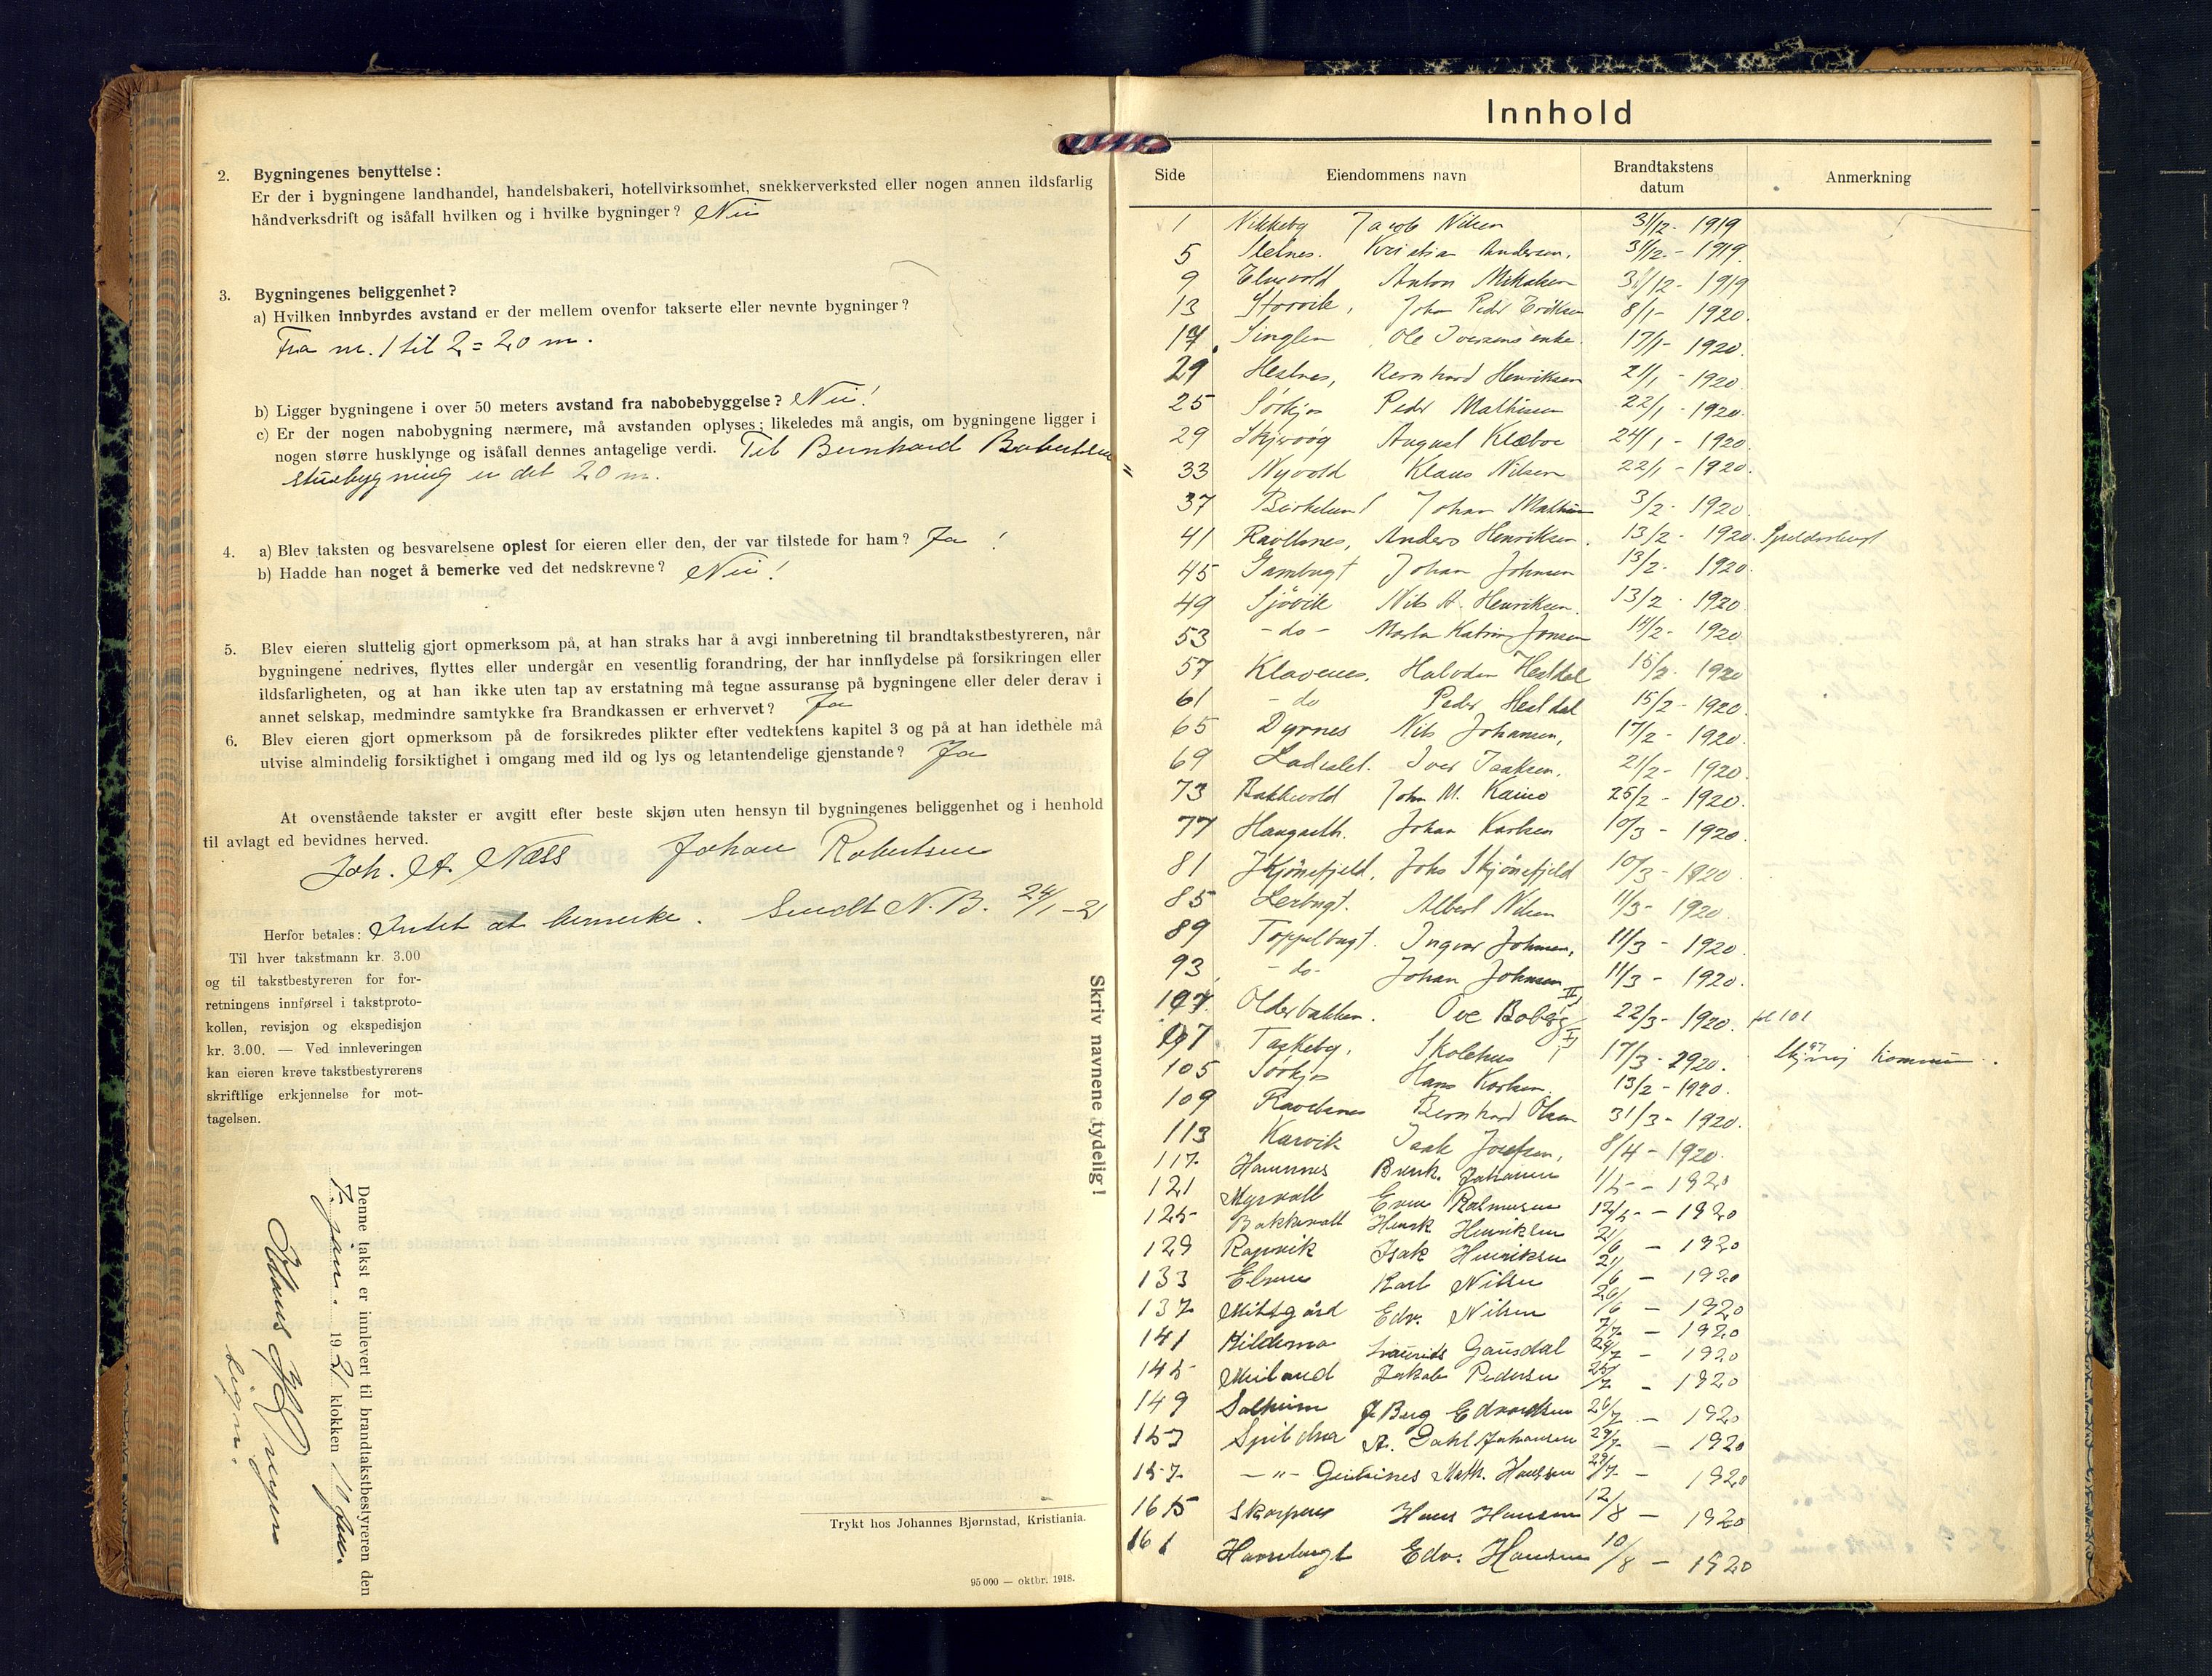 2. Bygningenes benyttelse:
Er der i bygningene landhandel, handelsbakeri, hotellvirksomhet, snekkerverksted eller nogen annen ildsfarlig
håndverksdrift og isåfall hvilken og i hvilke bygninger? Nei
3. Bygningenes beliggenhet?
a) Hvilken innbyrdes avstand er der mellem ovenfor takserte eller nevnte bygninger?
Fra nr. 1 til 2 = 20 m.
b) Ligger bygningene i over 50 meters avstand fra nabobebyggelse? Nei!
c) Er der nogen nabobygning nærmere, må avstanden oplyses; likeledes må angis, om bygningene ligger i
nogen større husklynge og isåfall dennes antagelige verdi. Til Bernhard Robertsen
stuebygning er det 20 m.
4. a) Blev taksten og besvarelsene oplest for eieren eller den, der var tilstede for ham? Ja!
b) Hadde han noget å bemerke ved det nedskrevne? Nei!
5. Blev eieren sluttelig gjort opmerksom på, at han straks har å avgi innberetning til brandtakstbestyreren, når
bygningene nedrives, flyttes eller undergår en vesentlig forandring, der har innflydelse på forsikringen eller
ildsfarligheten, og at han ikke uten tap av erstatning må tegne assuranse på bygningene eller deler derav i
annet selskap, medmindre samtykke fra Brandkassen er erhvervet? Ja
6. Blev eieren gjort opmerksom på de forsikredes plikter efter vedtektens kapitel 3 og på at han idethele må
utvise almindelig forsiktighet i omgang med ild og lys og letantendelige gjenstande? Ja
At ovenstående takster er avgitt efter beste skjøn uten hensyn til bygningenes beliggenhet og i henhold
til avlagt ed bevidnes herved.
Joh. A. Næss Johan Robertsen
Intet at bemerke. Sendt N. B. 24/1-21
Herfor betales:
Til hver takstmann kr. 3.00
og til takstbestyreren for for-
retningens innførsel i takstproto-
kollen, revisjon og ekspedisjon
kr. 3.00. — Ved innleveringen
kan eieren kreve takstbestyrerens
skriftlige erkjennelse for mot-
tagelsen.
Skriv navnene tydelig!
Denne takst er innlevert til brandtakstbestyreren den
7. jan. 1921 klokken 10 fm.
Trykt hos Johannes Bjørnstad, Kristiania.
95 000 — oktbr. 1918.
Innhold
Side Eiendommens navn Brandtakstens datum Anmerkning
1 Nikkeby Jacob Nilsen 31/12- 1919
5 Stelnes. Kristian Andersen. 31/12- 1919
9 Elvevold Anton Mikalsen 31/12- 1919
13 Storvik, Johan Peder Eriksen 8/1- 1920.
17 Singlen Ole Iversens enke. 17/1- 1920.
29 Hestnes, Bernhard Henriksen 21/1- 1920.
25 Sørkjos Peder Mathisen 22/1- 1920.
29 Skjervøy August Klæboe 24/1- 1920
33 Nyvold Klaus Nilsen 22/1- 1920.
37 Birkelund Johan Mathisen 3/2- 1920.
41 Ravelsnes, Anders Henriksen. 13/2- 1920.
45 Gambugt Johan Johnsen 13/2- 1920.
49 Sjøvik Nils A. Henriksen. 13/2- 1920.
53 -do- Marta Katrine Jonsen 14/2- 1920
57 Klavenes, Halvdan Hestdal 15/2- 1920
61 -do Peder Hestdal 15/2- 1920.
65 Dyrnes Nils Johansen, 17/2- 1920.
69 Ladselet. Iver Isaksen. 21/2- 1920.
73 Bakkevold John M. Kaino 25/2- 1920.
77 Haugseth. Johan Karlsen 10/3- 1920.
81 Skjønefjeld, Johs Skjønefjeld 10/3- 1920.
85 Lerbugt. Albert Nilsen 11/3- 1920.
89 Toppelbugt. Ingvar Johnsen, 11/3- 1920.
93 -do- Johan Johnsen 11/3- 1920.
Olderbakken. Ove Boberg II 22/3- 1920.
97 Taskeby. Skolehus I 17/3- 1920. Skjervøy kommune.
105 Sørkjos Hans Karlsen. 13/2- 1920.
109 Ravelsnes Bernhard Olsen 31/3- 1920.
113 Karvik Isak Josefsen, 8/4- 1920.
117 Hamnnes Johansen 1/5- 1920
121 Myrvoll Even Rasmussen 12/5- 1920
125 Bakkevoll Henrik Henriksen 21/6- 1920
129 Rapvik Isak Henriksen 21/6- 1920
133 Elvenes Karl Nilsen 26/6- 1920
137 Midtgård Edv. Nilsen 7/7- 1920
141 Hildermo Laurids Gausdal 24/7- 1920
145 Meiland Jakob Pedersen 25/7- 1920
149 Solheim J Berg Edvardsen 26/7- 1920
153 Spildra A. Dahl Johansen 29/7- 1920
157 -"- Math. Hansen 29/7- 1920
165 Skarpnes Hans Hansen 12/8- 1920
161 Havnebugt Edv. Hansen 10/8- 1920